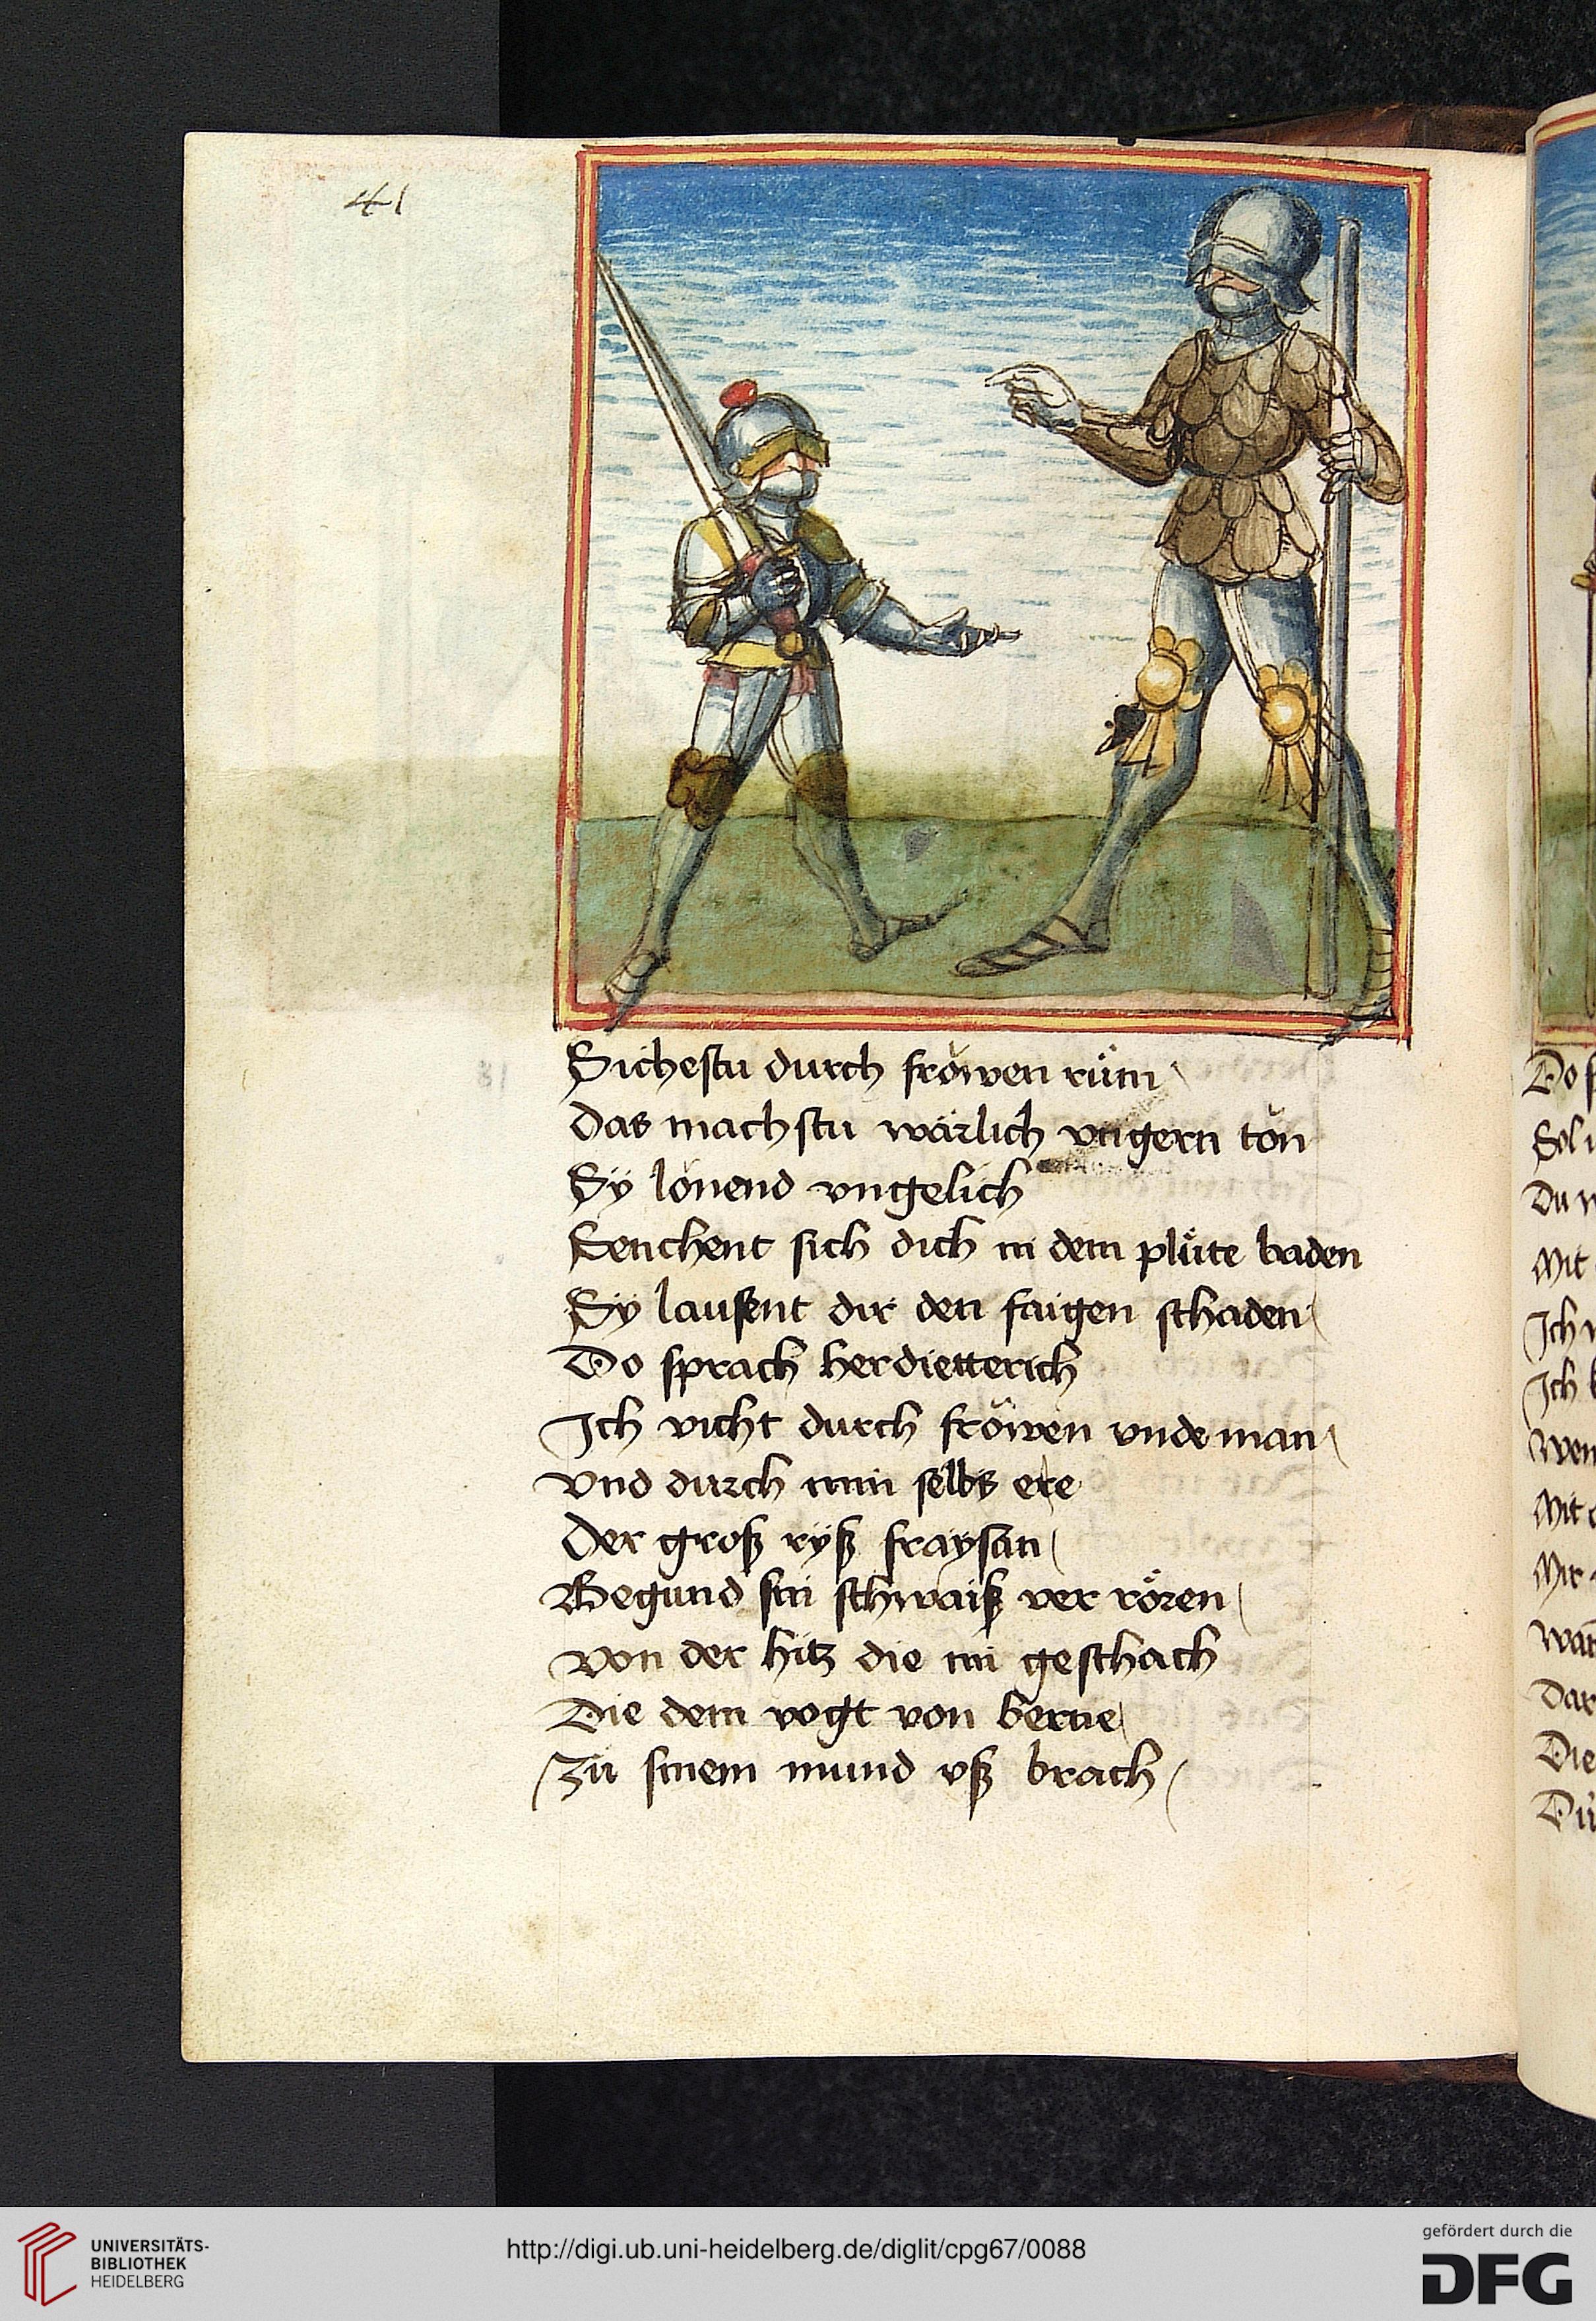 41
Sichestu durch frǒwen rům
das machstu wärlich vngern tǒn
Sÿ lǒnend vngelich
Senchent sich dich in dem plůte baden
Sÿ laussent dir den faigen schaden
Do sprach herdietterich
Ich vicht durch frǒwen vnde man
vnd durch min selbs ere
der groß ryß fraysan
Begund sin schwaiß ver rören
von der hitz die im geschach
Die dem vogt von berne
Zů sinem mund vß brach
Do
Sol
Du
Mit
Ich
Ich
Mit
Mir
Dar
Die
UNIVERSITÄTS-
BIBLIOTHEK
HEIDELBERG
http://digi.ub.uni-heidelberg.de/diglit/cpg67/0088
gefördert durch die
DFG